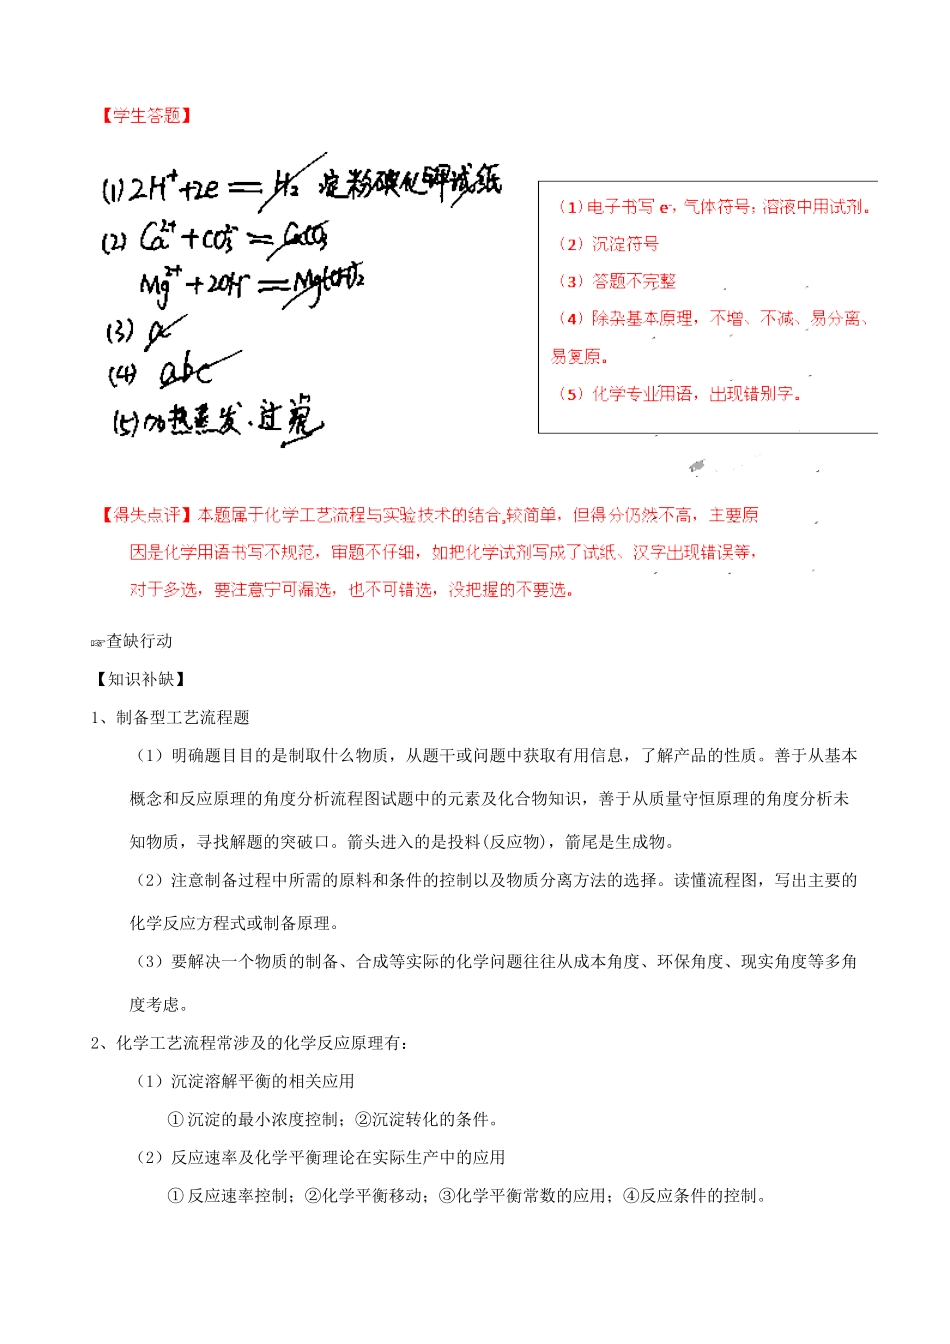 【学生答题】
(1) 2H⁺+2e = H₂ 淀粉碘化钾试纸
(2) Ca²⁺+CO₃²⁻ = CaCO₃
Mg²⁺+2OH⁻ = Mg(OH)₂
(3) a
(4) abc
(5) 加热蒸发、过
(1)电子书写 e-,气体符号;溶液中用试剂。
(2)沉淀符号
(3)答题不完整
(4)除杂基本原理,不增、不减、易分离、
易复原。
(5)化学专业用语,出现错别字。
【得失点评】本题属于化学工艺流程与实验技术的结合,较简单,但得分仍然不高,主要原
因是化学用语书写不规范,审题不仔细,如把化学试剂写成了试纸、汉字出现错误等,
对于多选,要注意宁可漏选,也不可错选,没把握的不要选。
☞查缺行动
【知识补缺】
1、制备型工艺流程题
(1)明确题目目的是制取什么物质,从题干或问题中获取有用信息,了解产品的性质。善于从基本
概念和反应原理的角度分析流程图试题中的元素及化合物知识,善于从质量守恒原理的角度分析未
知物质,寻找解题的突破口。箭头进入的是投料(反应物),箭尾是生成物。
(2)注意制备过程中所需的原料和条件的控制以及物质分离方法的选择。读懂流程图,写出主要的
化学反应方程式或制备原理。
(3)要解决一个物质的制备、合成等实际的化学问题往往从成本角度、环保角度、现实角度等多角
度考虑。
2、化学工艺流程常涉及的化学反应原理有:
(1)沉淀溶解平衡的相关应用
①沉淀的最小浓度控制;②沉淀转化的条件。
(2)反应速率及化学平衡理论在实际生产中的应用
①反应速率控制;②化学平衡移动;③化学平衡常数的应用;④反应条件的控制。